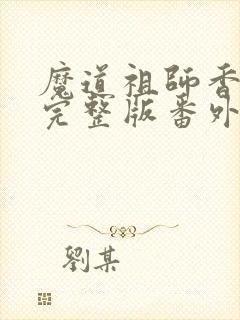 魔道祖師香
完整版番外
劉某